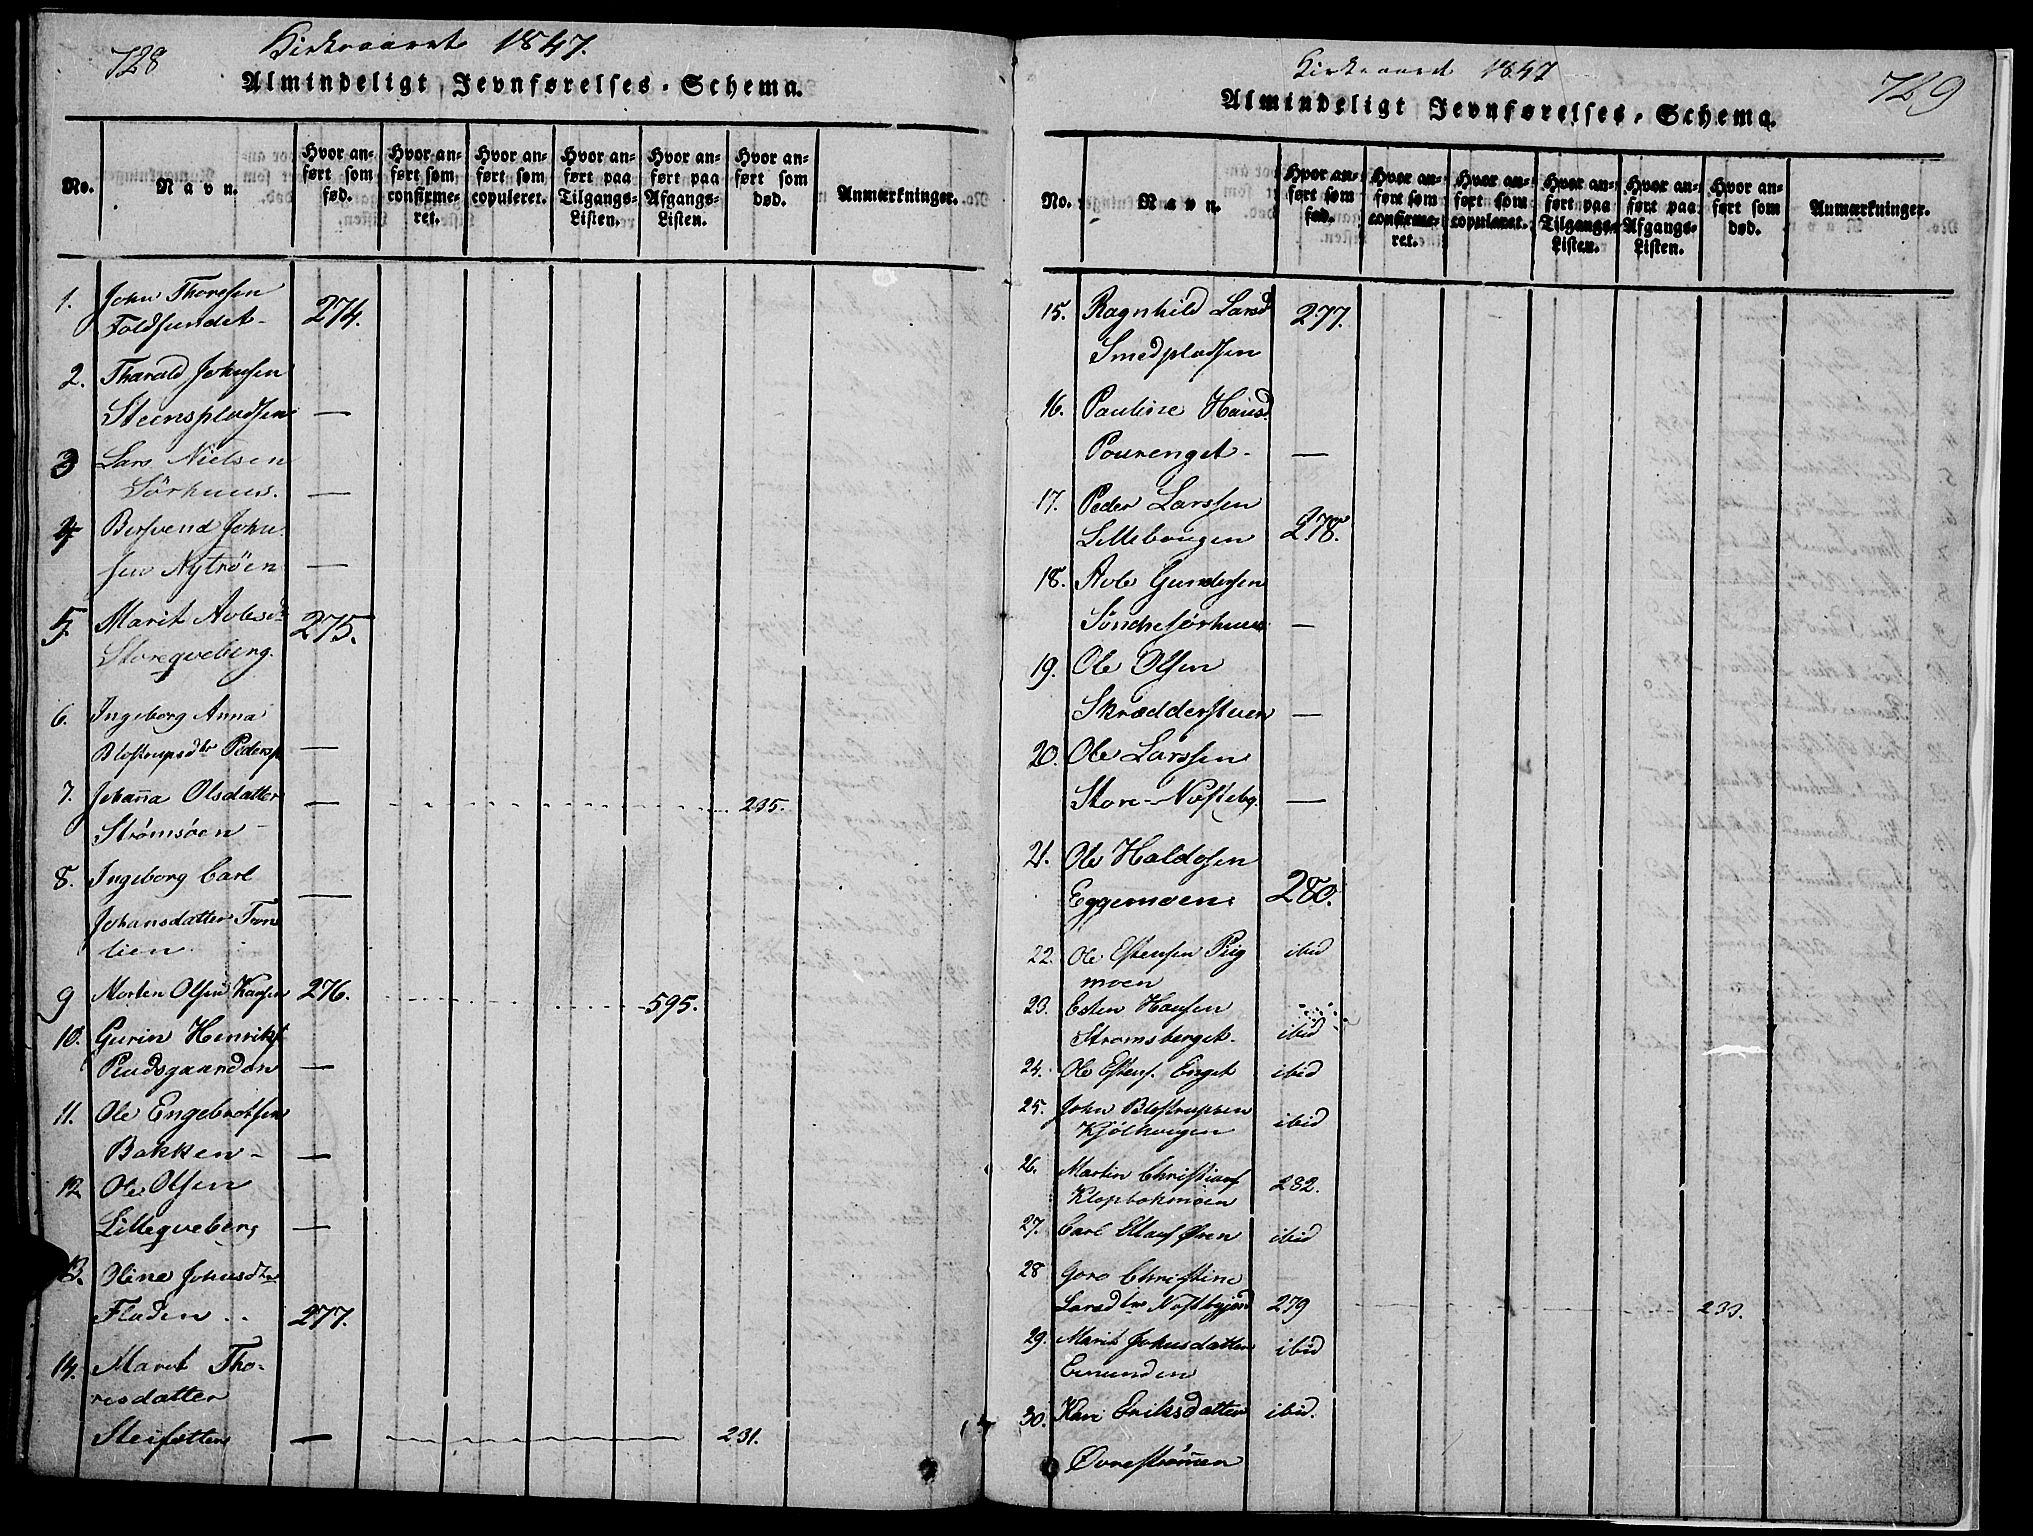 728
Kirkeaaret 1847.
Almindeligt Jevnførelses-Schema.
No.
Navn.
Hvor anført som fød.
Hvor anført som confirmeret.
Hvor anført som copuleret.
Hvor anført paa Tilgangs-Listen.
Hvor anført paa Afgangs-Listen.
Hvor anført som død.
Anmærkninger.
1. John Thoresen
Foldsundet- 274.
2. Tharald Johnsen
Steenspladsen —
3 Lars Nielsen
Sörhuus. —
4 Bersvend John-
sen Nytröen —
5. Marit Avlesd
Storeqveberg. 275.
6. Ingeborg Anna
Blostrupsdtr Pedersp —
7. Johaña Olsdatter — 235.
Strömsöen
8. Ingeborg Carl —
Johansdatter Tron
lien
9 Morten Olsen 276. 595.
10. Gurin Henriks
—
11. Ole Engebretsen
Bakken- —
12. Ole Olsen
Lilleqveberg —
13. Oline Johnsdtr
Floden .. 277.
14. Marit Tho-
resdatter
— 231.
729
Kirkeaaret 1847
Almindeligt Jevnførelses-Schema.
No.
Navn.
Hvor anført som fød.
Hvor anført som confirmeret.
Hvor anført som copuleret.
Hvor anført paa Tilgangs-Listen.
Hvor anført paa Afgangs-Listen.
Hvor anført som død.
Anmærkninger.
15. Ragnhild Larsd 277.
Smedpladsen
16. Pauline Hansd.
Pourenget- —
17. Peder Larssen
278.
18. Avle Gundersen
Söndresörhuus —
19. Ole Olsen
Skrædderstuen —
20. Ole Larssen
Store- —
21. Ole Haldosen
Eggemoen 280.
22. Ole Estensen ibid
moen
23. Esten Hansen
Stromsberget. ibid
24. Ole Estens. Enget ibid
25. John Blostrupsen
Kjölhougen ibid
26. Martin Christians
282.
27. Carl Øien ibid
28 Goro Christine
Larsdtr 279 233.
29. Marit Johnsdatter
Emunden ibid
30. Kari Eriksdatter ibid.
Øvreströmen